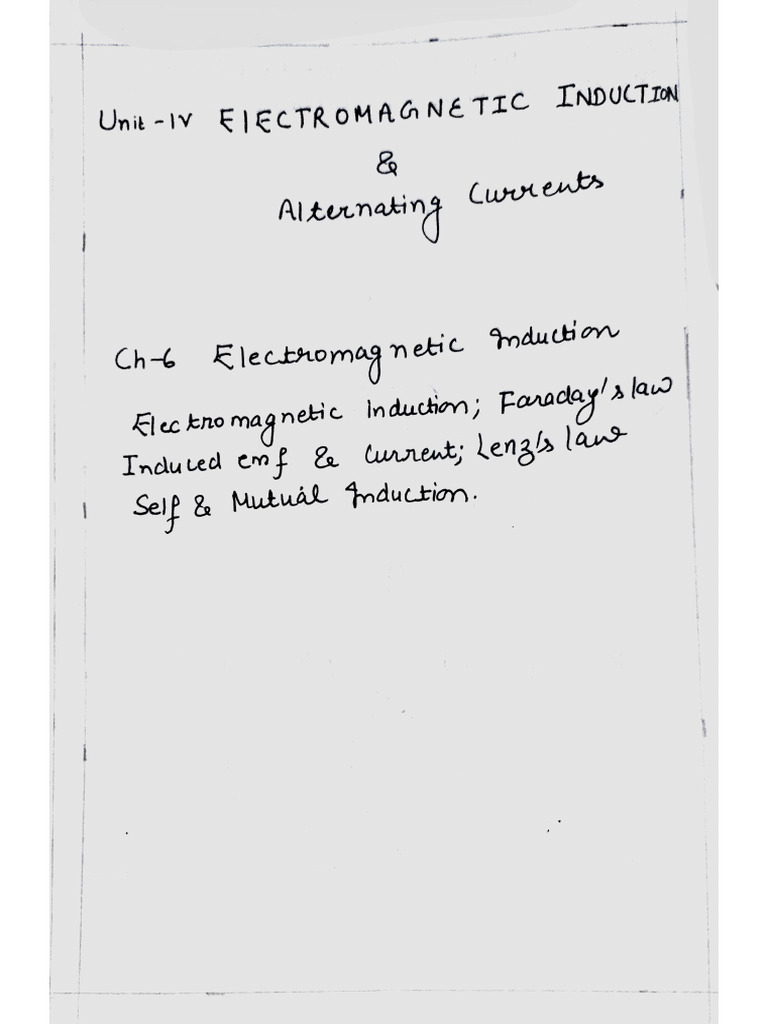 Unit-IV ELECTROMAGNETIC INDUCTION
&
Alternating Currents
Ch-6 Electromagnetic Induction
Electromagnetic Induction; Faraday's law
Induced emf & Current; Lenz's law
Self & Mutual Induction.